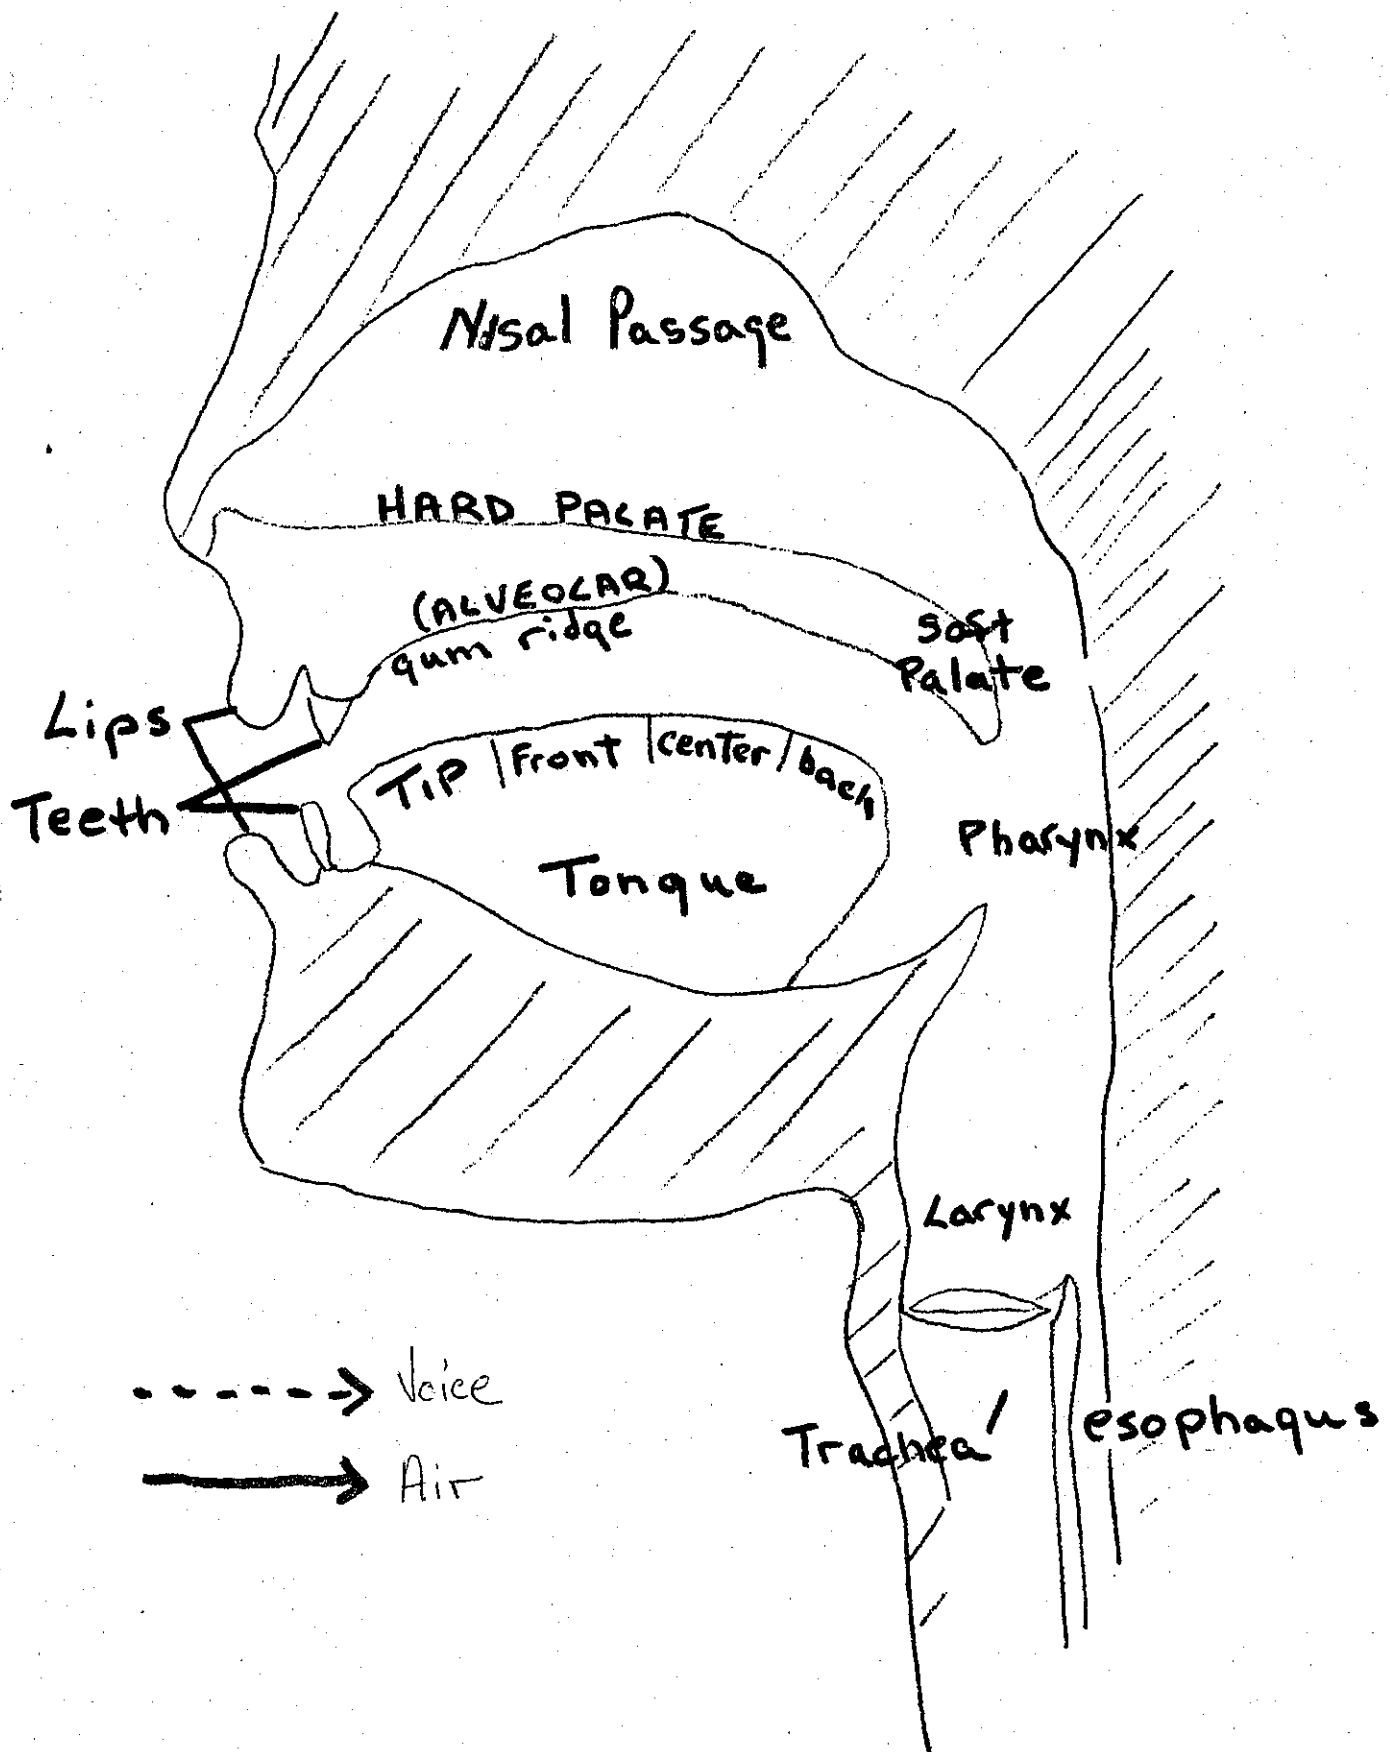 Nasal Passage
HARD PALATE
(ALVEOLAR)
gum ridge
Soft
Palate
Lips
Teeth
TIP Front center back
Tongue
Pharynx
Larynx
Voice
Air
Trachea
esophagus